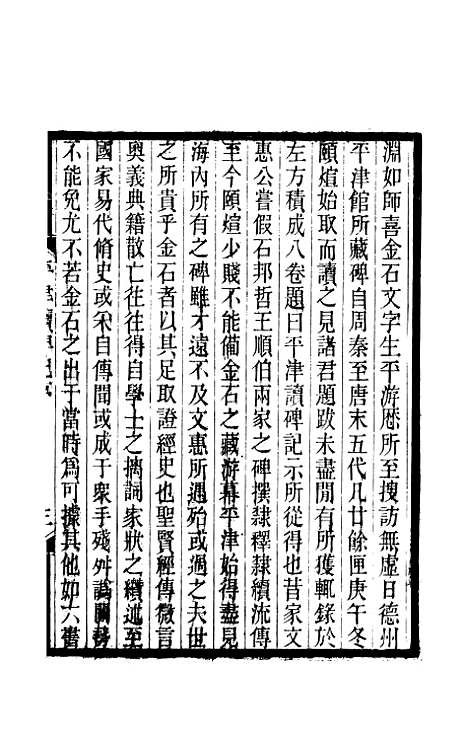 淵如師喜金石文字生平游歴所至搜訪無虛日德州
平津館所藏碑自周秦至唐末五代凡廿餘匣庚午冬
頤煊始取而讀之見諸君題跋未盡閒有所獲輒錄於
左方積成八卷題曰平津讀碑記示所從得也昔家文
惠公嘗假石邦哲王順伯兩家之碑撰隸釋隸續流傳
至今頤煊少賤不能備金石之藏游幕平津始得盡見
海內所有之碑雖才遠不及文惠所遇殆或過之夫世
之所貴乎金石者以其足取證經史也聖賢經傳微言
奧義典籍散亡往往得自學士之摛詞家狀之纘述至
國家易代脩史或采自傳聞或成于衆手殘舛譌闕
不能免尤不若金石之出于當時爲可據其他如六書